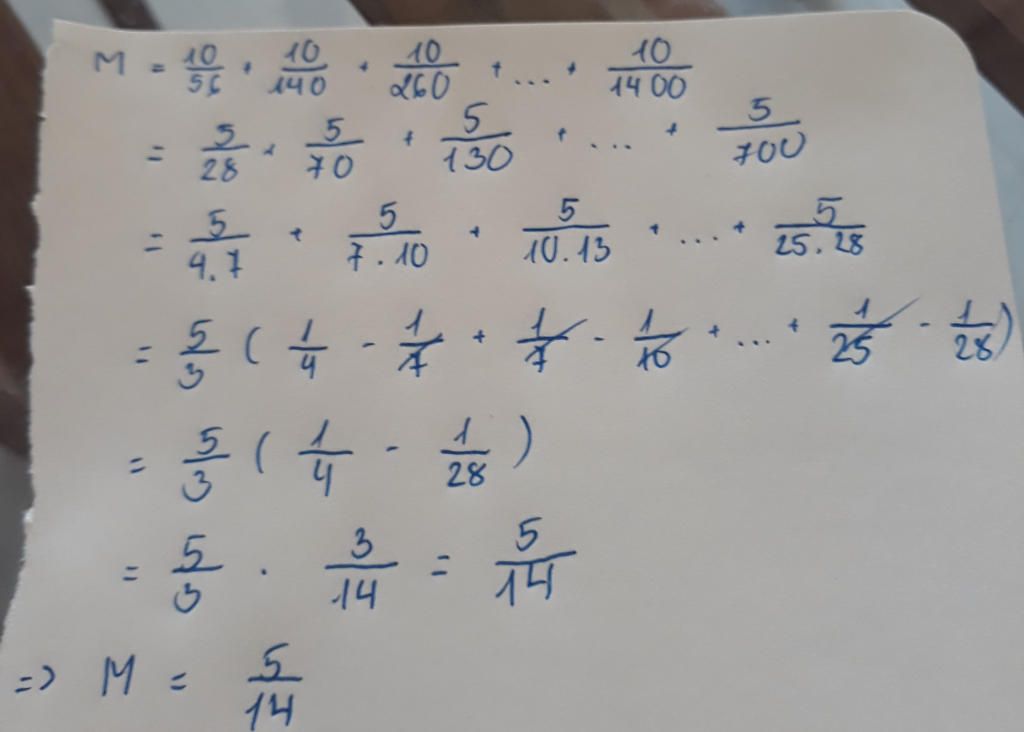 M = 10/56 + 10/140 + 10/260 + ... + 10/1400
= 5/28 + 5/70 + 5/130 + ... + 5/700
= 5/4.7 + 5/7.10 + 5/10.13 + ... + 5/25.28
= 5/3 ( 1/4 - 1/7 + 1/7 - 1/10 + ... + 1/25 - 1/28 )
= 5/3 ( 1/4 - 1/28 )
= 5/3 . 3/14 = 5/14
=> M = 5/14